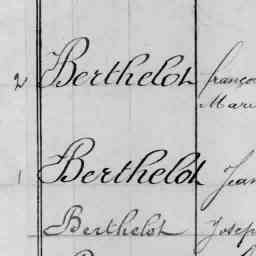 2 Berthelot franço
Mari
1 Berthelot Jean
Berthelot Josep